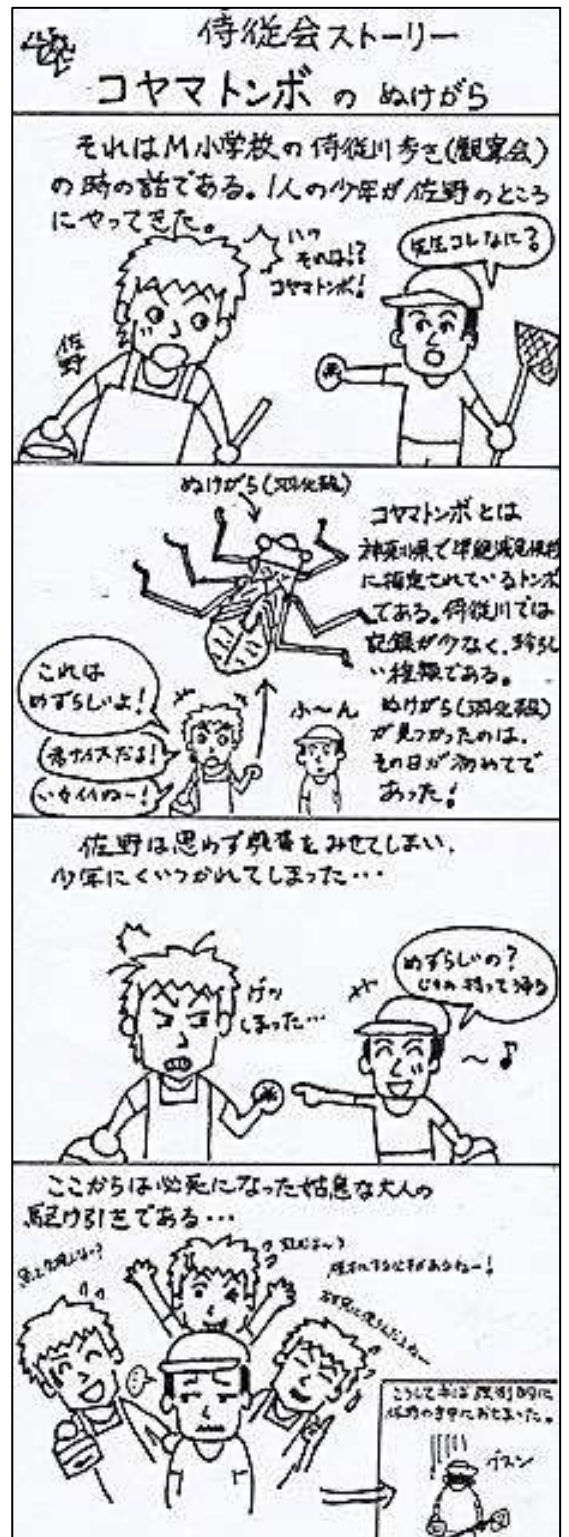 侍従会ストーリー
コヤマトンボ の ぬけがら
それはM小学校の侍従川歩き(観察会)
の時の話である。1人の少年が佐野のところ
にやってきた。
いっ
それは!?
コヤマトンボ!
先生コレなに?
佐野
ぬけがら(羽化殻)
コヤマトンボとは
神奈川県で準絶滅危惧種
に指定されているトンボ
である。侍従川では
記録が少なく、珍らし
い種類である。
ぬけがら(羽化殻)
が見つかったのは、
その日が初めてで
あった!
これは
めずらしいよ!
君ナイスだよ!
いやイイねー!
ふ〜ん
佐野は思わず興奮をみせてしまい、
少年にくいつかれてしまった…
げっ
しまった…
めずらしいの?
じゃあ持って帰る
〜♪
ここからは必死になった姑息な大人の
駆け引きである…
研究に使うんだよねー
こうして半ば強制的に
佐野の手中におさまった。
グスン